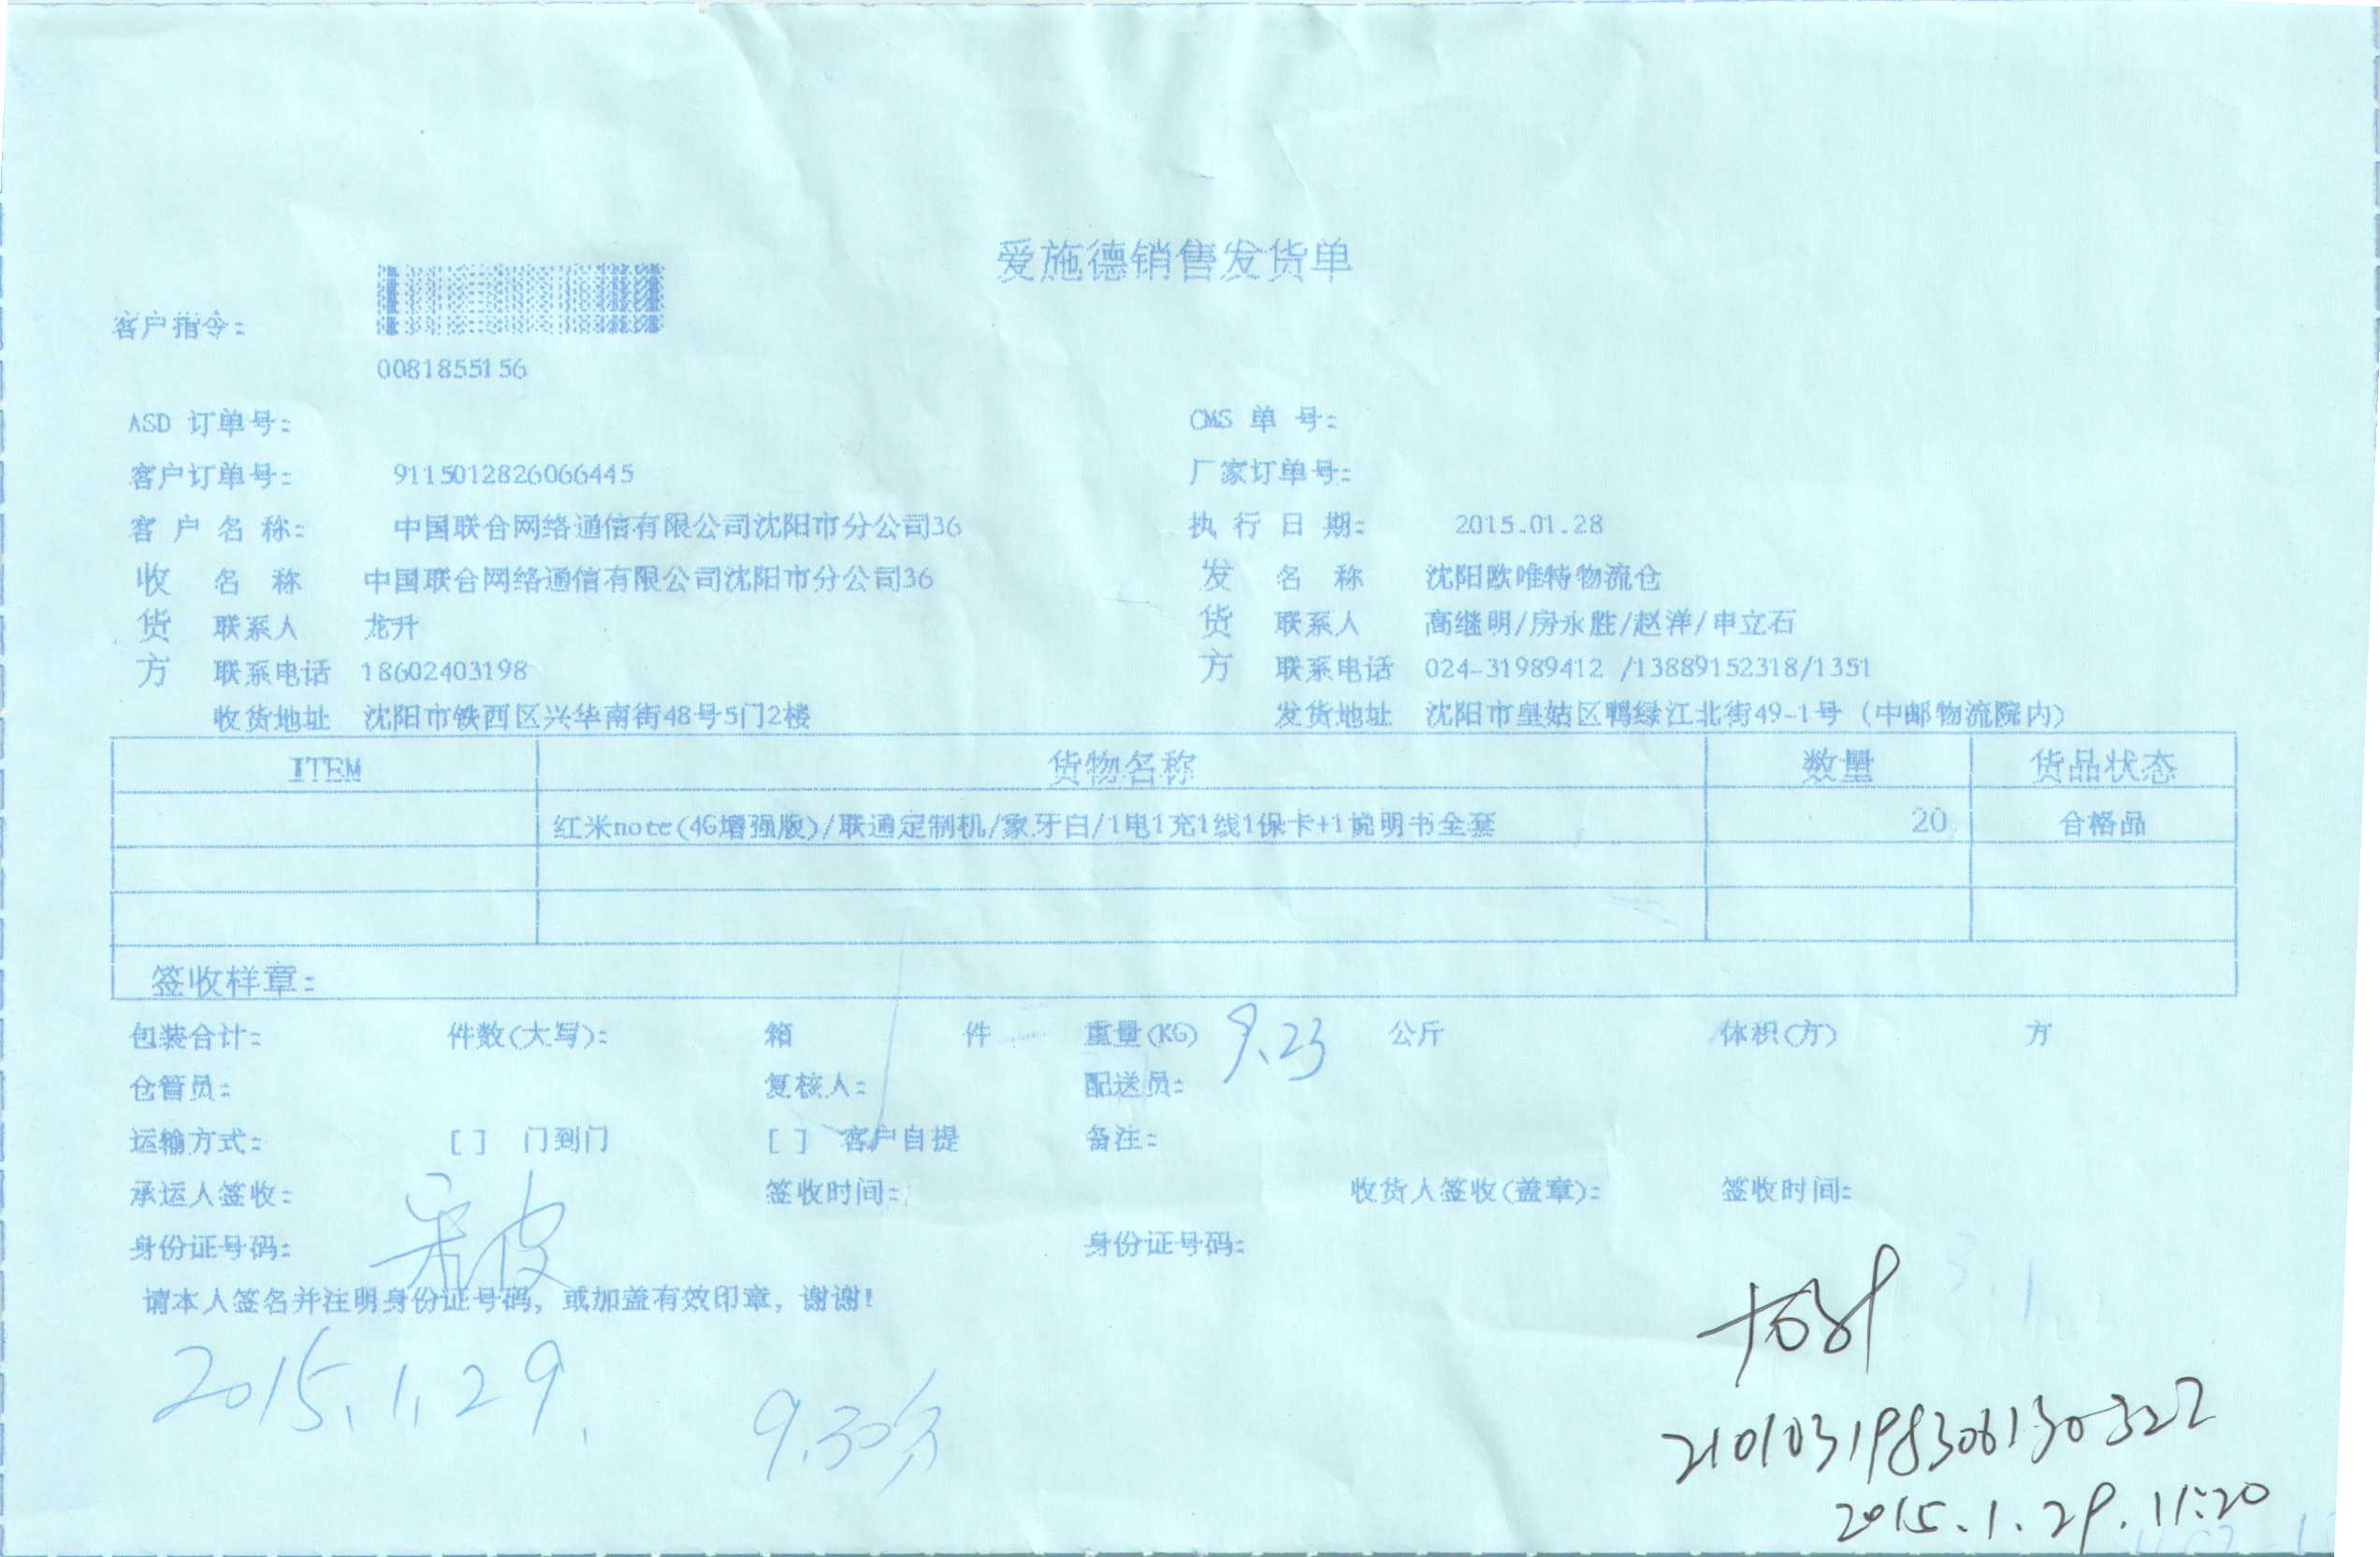 爱施德销售发货单
客户指令:
0081855156
ASD 订单号: CMS 单 号:
客户订单号: 9115012826066445 厂家订单号:
客 户 名 称: 中国联合网络通信有限公司沈阳市分公司36 执 行 日 期: 2015.01.28
收 名 称 中国联合网络通信有限公司沈阳市分公司36 发 名 称 沈阳欧唯特物流仓
货 联系人 龙升 货 联系人 高继明/房永胜/赵洋/申立石
方 联系电话 18602403198 方 联系电话 024-31989412 /13889152318/1351
收货地址 沈阳市铁西区兴华南街48号5门2楼 发货地址 沈阳市皇姑区鸭绿江北街49-1号 (中邮物流院内)
ITEM 货物名称 数量 货品状态
红米note(4G增强版)/联通定制机/象牙白/1电1充1线1保卡+1说明书全套 20 合格品
签收样章:
包装合计: 件数(大写): 箱 件 重量(KG) 9.23 公斤 体积(方) 方
仓管员: 复核人: 配送员:
运输方式: [ ] 门到门 [ ] 客户自提 备注:
承运人签收: 签收时间: 收货人签收(盖章): 签收时间:
身份证号码: 身份证号码:
请本人签名并注明身份证号码, 或加盖有效印章, 谢谢!
2015.1.29. 9.30分
210103198306130322
2015.1.29.11:20